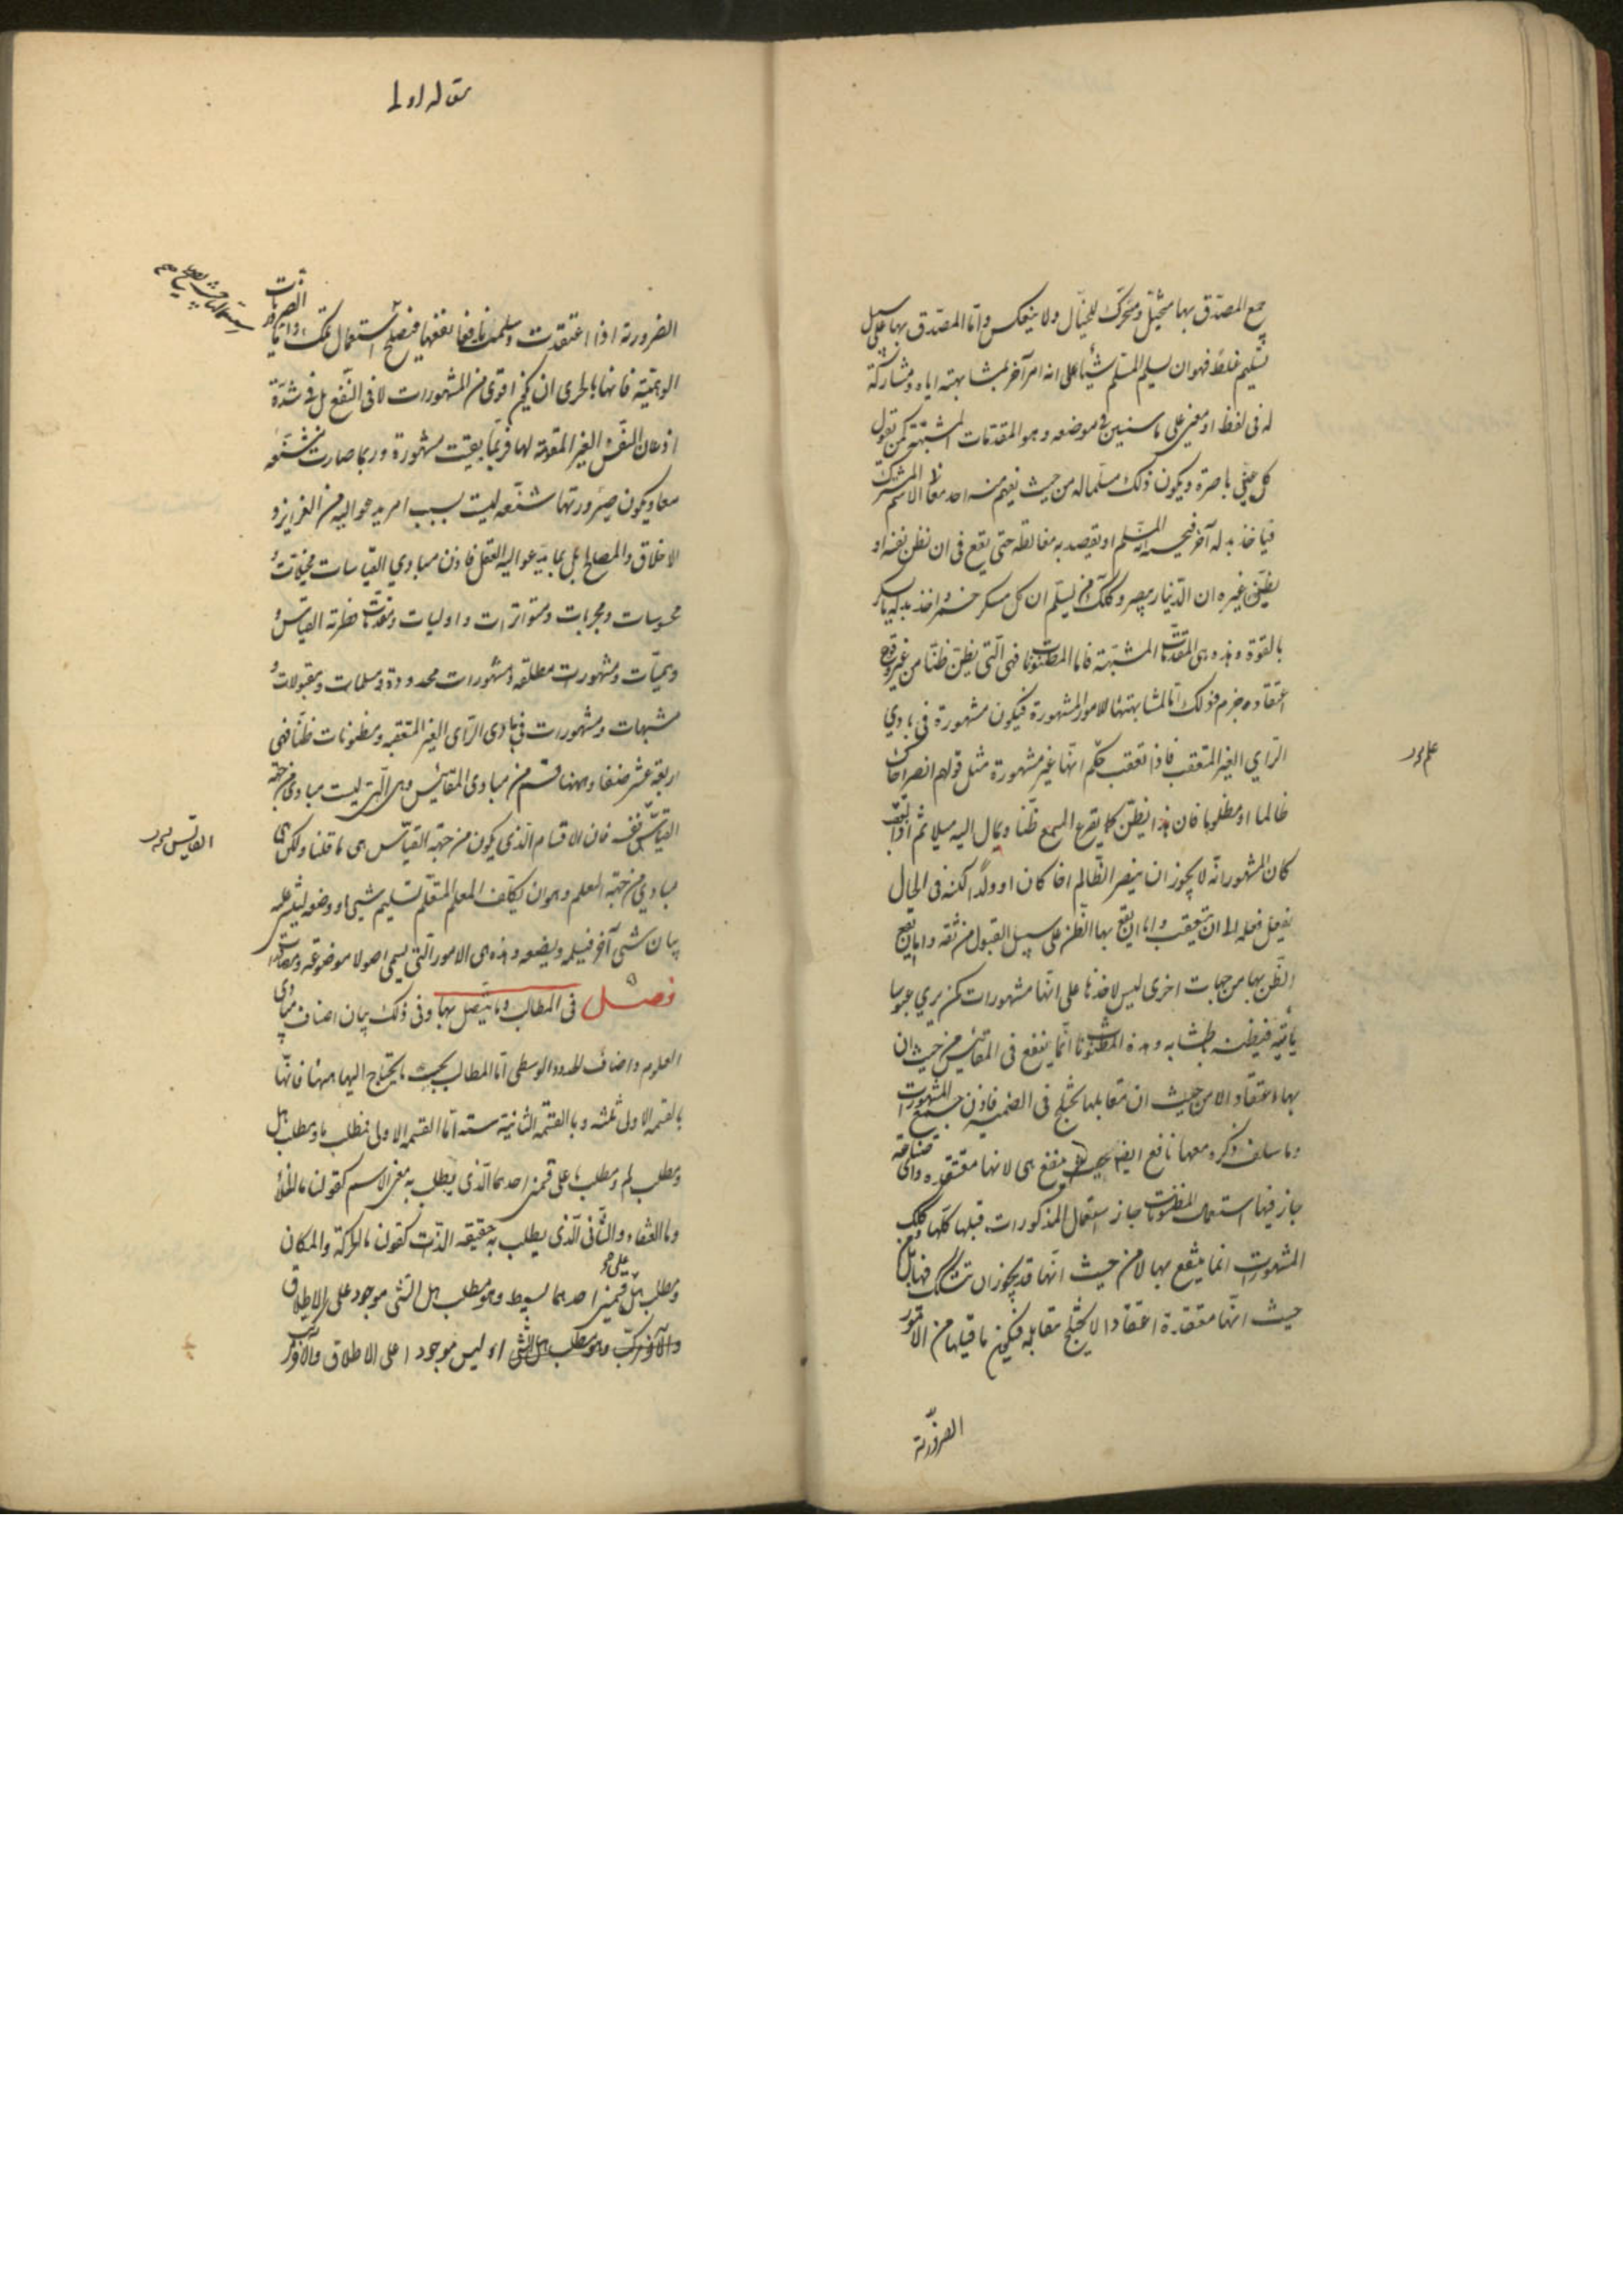 جمع المصدق بها مخيل ومحرك للخيال ولا ينعكس واما المصدق بها على سبيل
تسليم غلط فهو ان يسلم المسلم شيئا على انه امر آخر لمشابهته اياه ومشاركته
له في لفظ او معنى على ما سنبين في موضعه وهو المقدمات المشبهة كمن يقول
كل عين باصرة ويكون ذلك مسلما له من حيث يفهم منه احد معاني الاسم المشترك
فياخذ بدله آخر انه المسلم او يقصد به مغالطة حتى يقع في ان يظن نفسه او
يظن غيره ان الدينار يبصر وكذلك من يسلم ان كل مسكر خمر واخذ بدله ما يسكر
بالقوة وهذه هي المقدمات المشبهة فاما المظنونات فهي التي يظن ظنا من غير وقوع
اعتقاد جزم وذلك اما لمشابهتها للامور المشهورة فيكون مشهورة في بادي
الراي الغير المتعقب فاذا تعقب حكم انها غير مشهورة مثل قولهم انصر اخاك
ظالما او مظلوما فان هذا يظن كما يقرع السمع ظنا ويمال اليه ميلا ثم اذا تعقب
كان المشهور انه لا يجوز ان ينصر الظالم اخا كان او ولدا لكنه في الحال
يفعل فعله الى ان يتعقب واما ان يقع بها الظن على سبيل القبول من ثقة واما ان يقع
الظن بها من جهات اخرى ليس لاخذها على انها مشهورات كمن يرى عبوسا
ياتيه فيظنه وهذه المظنونات انما ينفع في المقائيس من حيث ان
بها اعتقاد لا من حيث ان مقابلها يختلج في الضمير فاذن جميع المشهورات
وما سلف ذكره معها نافع ايضا حيث ينفع هي لانها معتقدة واي صناعة
جاز فيها استعمال المظنونات جاز استعمال المذكورات قبلها كلها وكذلك
المشهورات انما ينتفع بها لا من حيث انها قد يجوز ان يتشكك فيها بل من
حيث انها معتقدة اعتقادا لا يختلج مقابله فيكون ما قبلها من الامور
الضرورية
مقاله اولى
الضرورية اذا اعتقدت وسلمت نافعا نفعها فيصلح استعمال تلك
الوهمية فانها بالحرى ان يكون اقوى من المشهورات لا في النفع بل في شدة
اذعان النفس الغير المقومة لها فربما بقيت مشهورة وربما صارت شنعة
معا ويكون صيرورتها شنعة ليست بسبب امر يدعو اليه من الغرايز و
الاخلاق والمصالح بل بما يدعو اليه العقل فاذن مبادي القياسات مخيلات و
محسوسات ومجربات ومتواترات واوليات ومقدمات فطرية القياس و
وهميات ومشهورات مطلقة ومشهورات محدودة ومسلمات ومقبولات و
مشبهات ومشهورات في بادى الراى الغير المتعقب ومظنونات ظنا فهي
اربعة عشر صنفا وههنا قسم من مبادى المقائيس وهى التي ليست مبادى من جهة
القياس نفسه فان الاقسام الذى يكون من جهة القياس هى ما قلنا ولكن هى
مبادى من جهة المعلم وهو ان يكلف المعلم المتعلم تسليم شيء ووضعه ليبتنى عليه
بيان شيء آخر فيسلمه ويضعه وهذه هى الامور التي يسمى اصولا موضوعة ومصادرات
فصل في المطالب وما يتصل بها وفي ذلك بيان اصناف مبادى
العلوم واصناف الحدود الوسطى اما المطالب بحسب ما يحتاج اليها ههنا فانها
بالقسمة الاولى ثلثة وبالقسمة الثانية ستة اما القسمة الاولى فمطلب ما ومطلب هل
ومطلب لم ومطلب ما على قسمين احدهما الذى يطلب به معنى الاسم كقولنا ما الخلأ
وما العنقاء والثانى الذى يطلب به حقيقة الذات كقولنا ما الحركة والمكان
ومطلب هل على قسمين احدهما بسيط وهو مطلب هل الشى موجود على الاطلاق
والآخر مركب وهو مطلب هل الشى او ليس موجودا على الاطلاق والآخر مركب